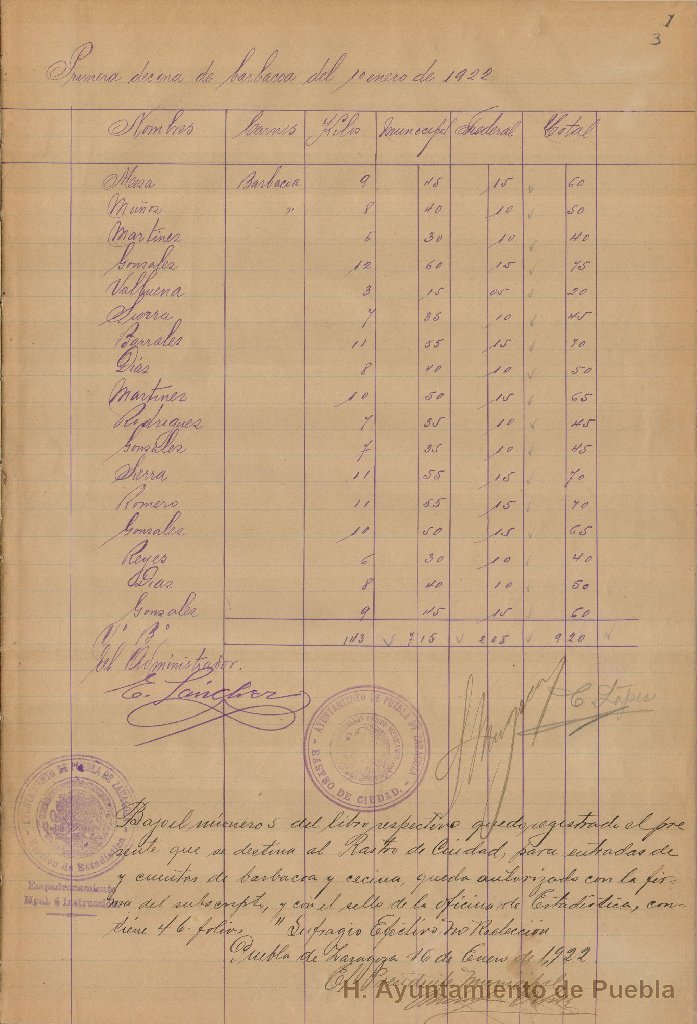 1
3
Primera decena de barbacoa del 1o enero de 1922
Nombres Carnes Kilos Municipal Federal Total
Meza Barbacoa 9 45 15 60
Muños " 8 40 10 50
Martines 6 30 10 40
Gonzales 12 60 15 75
Valbuena 3 15 05 20
Sierra 7 35 10 45
Barrales 11 55 15 70
Dias 8 40 10 50
Martines 10 50 15 65
Rodrigues 7 35 10 45
Gonzales 7 35 10 45
Sierra 11 55 15 70
Romero 11 55 15 70
Gonzales 10 50 15 65
Reyes 6 30 10 40
Dias 8 40 10 50
Gonzales 9 45 15 60
Vo Bo 143 715 205 920
El Administrador.
E. Sanchez
C. Lopez
AYUNTAMIENTO DE PUEBLA DE ZARAGOZA
RASTRO DE CIUDAD.
AYUNTAMIENTO DE PUEBLA DE ZARAGOZA
Seccion de Estadistica
Empadronamiento
Mpal. é Instrucción
Bajo el número 5 del libro respectivo, queda registrado el pre-
sente que se destina al Rastro de Ciudad, para entradas de
y cuentas de barbacoa y cecina, queda autorizado con la fir-
ma del subscripto, y con el sello de la oficina de Estadistica, con-
tiene 46 folios. "Sufragio Efectivo No Reelección
Puebla de Zaragoza 16 de Enero de 1,922
El Presidente Municipal
H. Ayuntamiento de Puebla